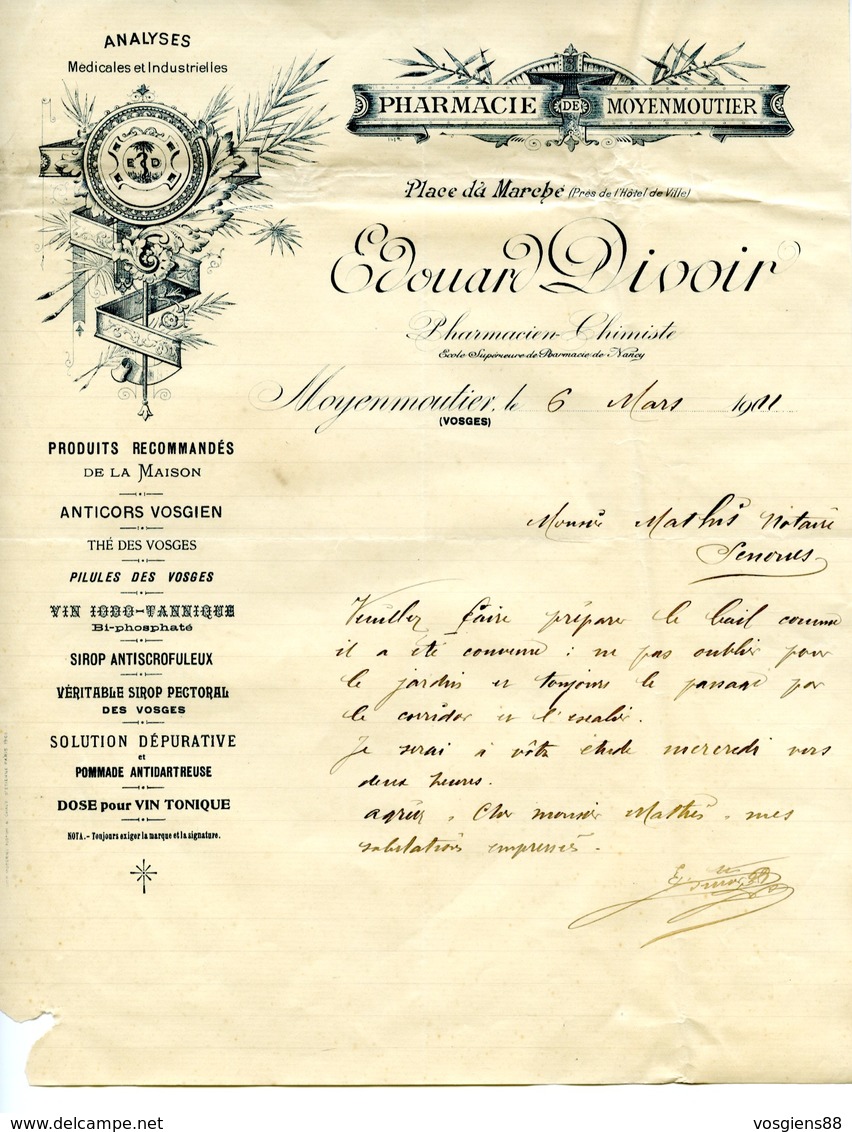 ANALYSES
Médicales et Industrielles
E D
PHARMACIE DE MOYENMOUTIER
Place du Marché (Près de l'Hôtel de Ville)
Edouard Divoir
Pharmacien-Chimiste
Ecole Supérieure de Pharmacie de Nancy
Moyenmoutier, le 6 Mars 1911
(VOSGES)
PRODUITS RECOMMANDÉS
DE LA MAISON
ANTICORS VOSGIEN
THÉ DES VOSGES
PILULES DES VOSGES
VIN IODO-TANNIQUE
Bi-phosphaté
SIROP ANTISCROFULEUX
VÉRITABLE SIROP PECTORAL
DES VOSGES
SOLUTION DÉPURATIVE
et
POMMADE ANTIDARTREUSE
DOSE pour VIN TONIQUE
NOTA.- Toujours exiger la marque et la signature.
Monsieur Mathis Notaire
Senones
Veuillez faire préparer le bail comme
il a été convenu : ne pas oublier pour
le jardin et toujours le passage par
le corridor et l'escalier.
Je serai à votre étude mercredi vers
deux heures.
Agréez, Cher monsieur Mathis, mes
salutations empressées.
delcampe.net
vosgiens88